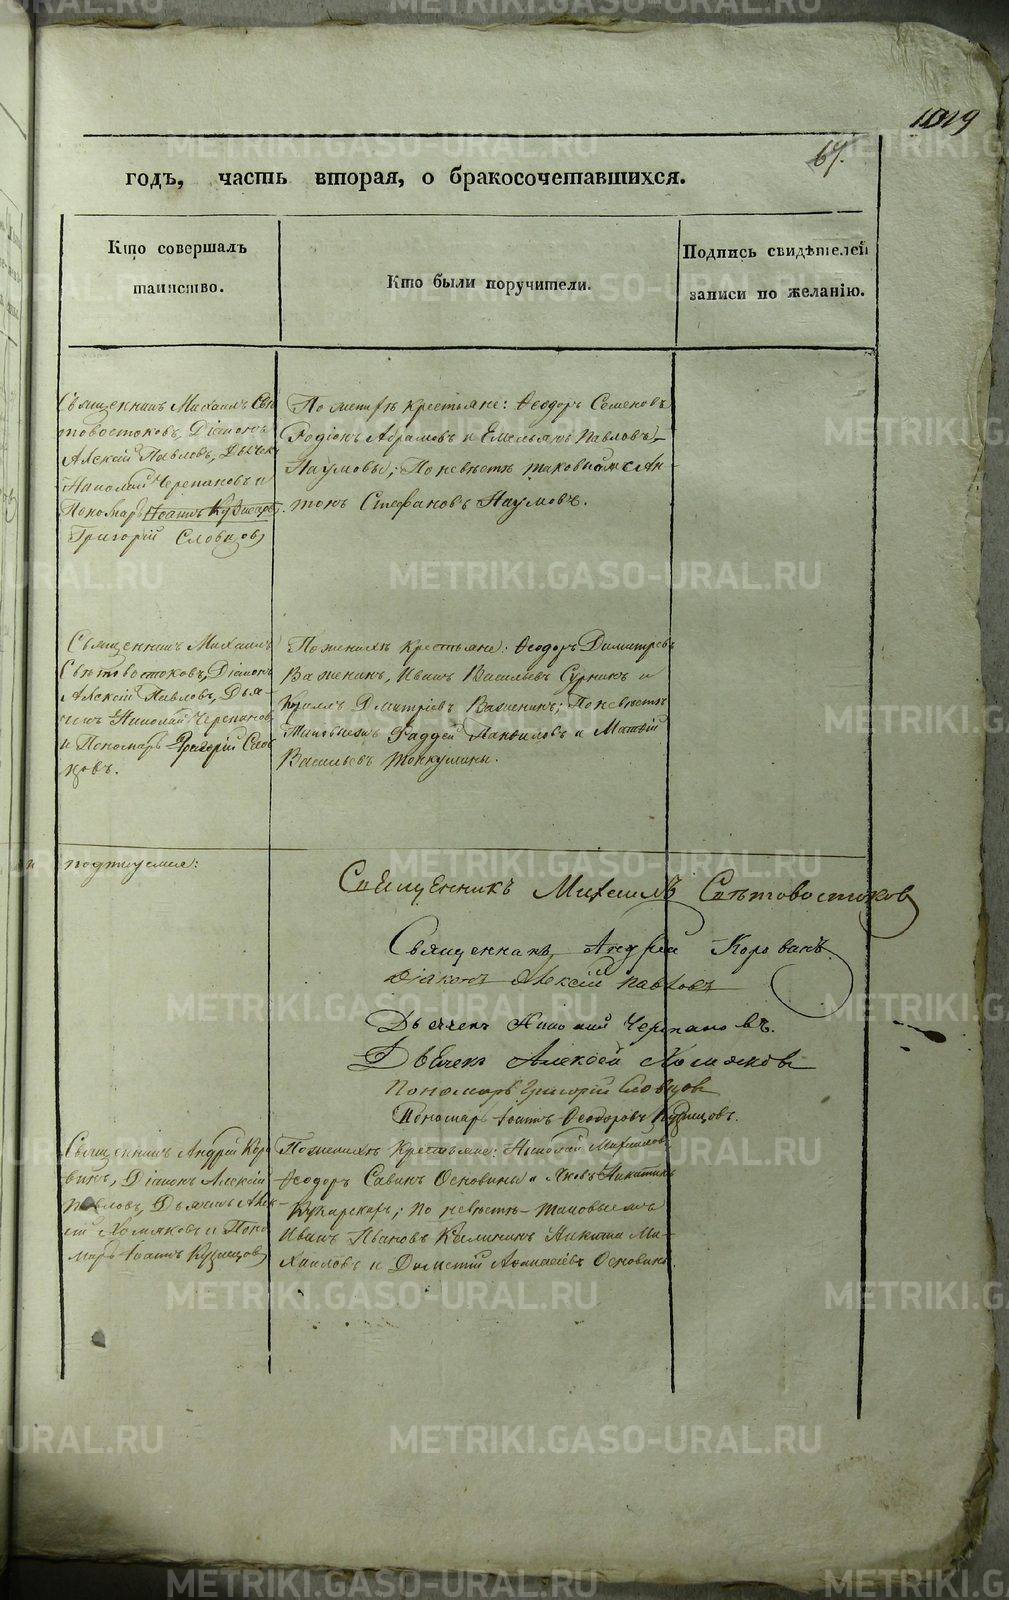 1019
67.
годъ, часть вторая, о бракосочетавшихся.
Кто совершалъ
таинство.
Кто были поручители.
Подпись свидѣтелей
записи по желанію.
Священникъ Михаилъ Свѣ
товостоковъ, Діаконъ
Алексій Павловъ, Дьячекъ
Николай Черепановъ и
Пономарь Іоаннъ Кузнецов
Григорій Словцовъ
По женихѣ крестьяне: Ѳеодоръ Семеновъ,
Родіонъ Абрамовъ и Емельянъ Павловъ
Наумовы; По невѣстѣ таковыиже Ан-
тонъ Стефановъ Наумовъ.
Священникъ Михаилъ
Свѣтовостоковъ, Діаконъ
Алексій Павловъ, Дья-
чекъ Николай Черепановъ
и Пономарь Григорій Слов
цовъ.
По женихѣ крестьяне: Ѳеодоръ Димитріевъ
Важенинъ, Иванъ Васильевъ Сурнинъ и
Кириллъ Дмитріевъ Важенинъ; По невѣстѣ
таковыежъ Фаддей Панфиловъ и Матвій
Васильевъ
подписуемся:
Священникъ Михаилъ Свѣтовостоковъ
Священникъ Андрей Коровинъ.
Діаконъ Алексій Павловъ
Дьячекъ Николай Черепановъ.
Дьячекъ Алексѣй Хомяковъ
Пономарь Григорій Словцовъ
Пономарь Іоаннъ Ѳеодоровъ Кузнецовъ.
Священникъ Андрей Коро
винъ, Діаконъ Алексій
Павловъ, Дьячекъ Алек-
сій Хомяковъ и Поно
марь Іоаннъ Кузнецовъ
По женихѣ Крестьяне: Николай Михайловъ,
Ѳеодоръ Савинъ Основины и Яковъ Никитинъ
Кукарскаръ; по невѣстѣ таковыежъ
Иванъ Ивановъ Калининъ Никита Ми-
хайловъ и Дометій Аѳанасіевъ Основины.
METRIKI.GASO-URAL.RU